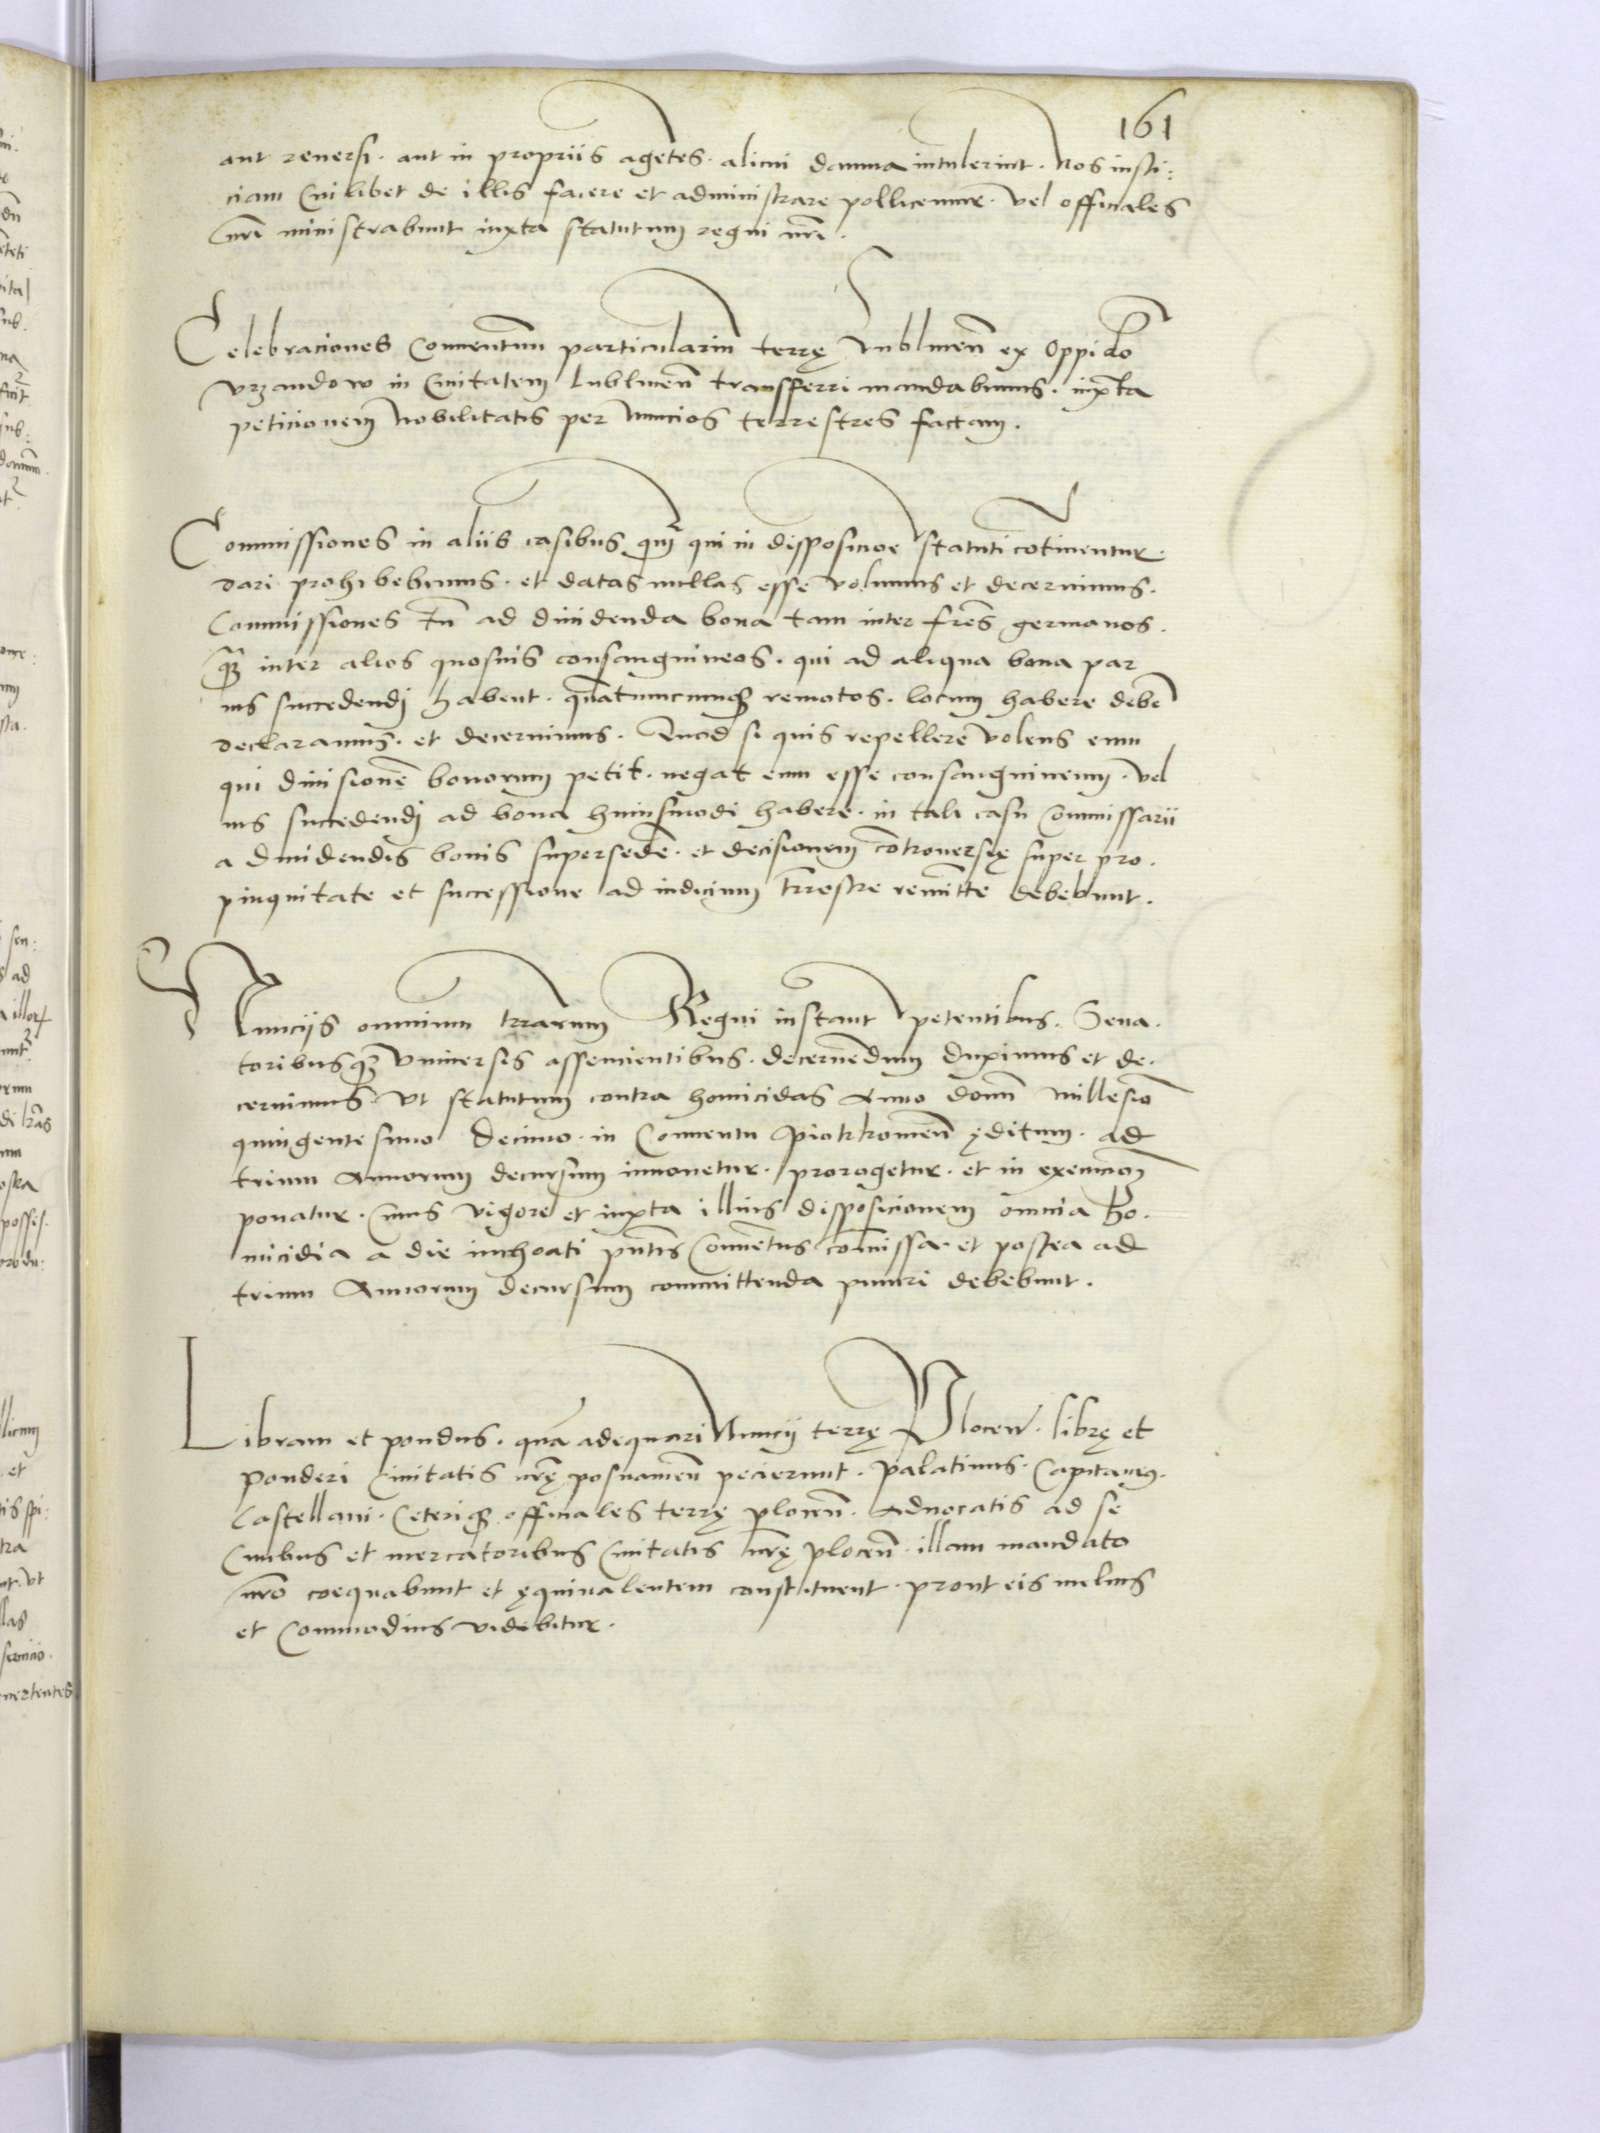 161
aut reuersi. aut in propriis agẽtes. alicui damna intulerint. Nos iusti:
ciam Cuilibet de illis facere et administrare pollicemur. Vel officiales
nr̃i ministrabunt iuxta statutum regni nr̃i.
Celebraciones Conuentuum particulariũ terrę Lublineñ ex Oppido
Vrzandow in Ciuitatem Lublineñ transfferri mandabimus. iuxta
peticionem Nobilitatis per Nuncios terrestres factam.
Commissiones in aliis casibus q̃m qui in disposicioe Statuti cõtinentur.
dari prohibebimus. et datas nullas esse volumus et decernimus.
Commissiones tñ ad diuidenda bona tam inter fr̃es germanos.
q̃ inter alios quosuis consanguineos. qui ad aliqua bona par
ius succedendj habent. quãtumcumq; remotos. locum habere debẽ
declaramus. et decernimus. Quod si quis repellere volens eum
qui diuisionẽ bonorum petit. negat eum esse consanguineum. vel
ius succedendj ad bona huiusmodi habere. in tali casu Commissarii
a diuidendis bonis supersedẽ. et decisionem cõtrouersię super pro.
pinquitate et successione ad iudicium tr̃restre remitte debebunt.
Nunciis omnium trãrum Regni instant petentibus. Sena.
toribusq; Vniuersis assencientibus. decernẽdum duximus et de.
cernimus Vt statutum contra homicidas Anno domĩ Millesiõ
quingentesimo Decimo. in Conuentu Piotrkouieñ ęditum. ad
trium Annorum decursum innouetur. prorogetur. et in execucioẽ
ponatur. Cuius vigore et iuxta illius disposicionem omnia ho.
micidia a die inchoati pñtis Conuẽtus comissa. et postea ad
trium Annorum decursum committenda puniri debebunt.
Libram et pondus. quã adequari Nuncij terrę Plocen̄. librę et
ponderi Ciuitatis nr̃ę posnanieñ pecierunt. Palatinus. Capitaneꝰ.
Castellani. Ceteriq; officiales terrę ploceñ. Aduocatis ad se
Ciuibus et mercatoribus Ciuitatis nr̃ę ploceñ. illam mandato
nr̃o coequabunt et ęquiualentem constituent. prout eis melius
et Commodius videbitur.